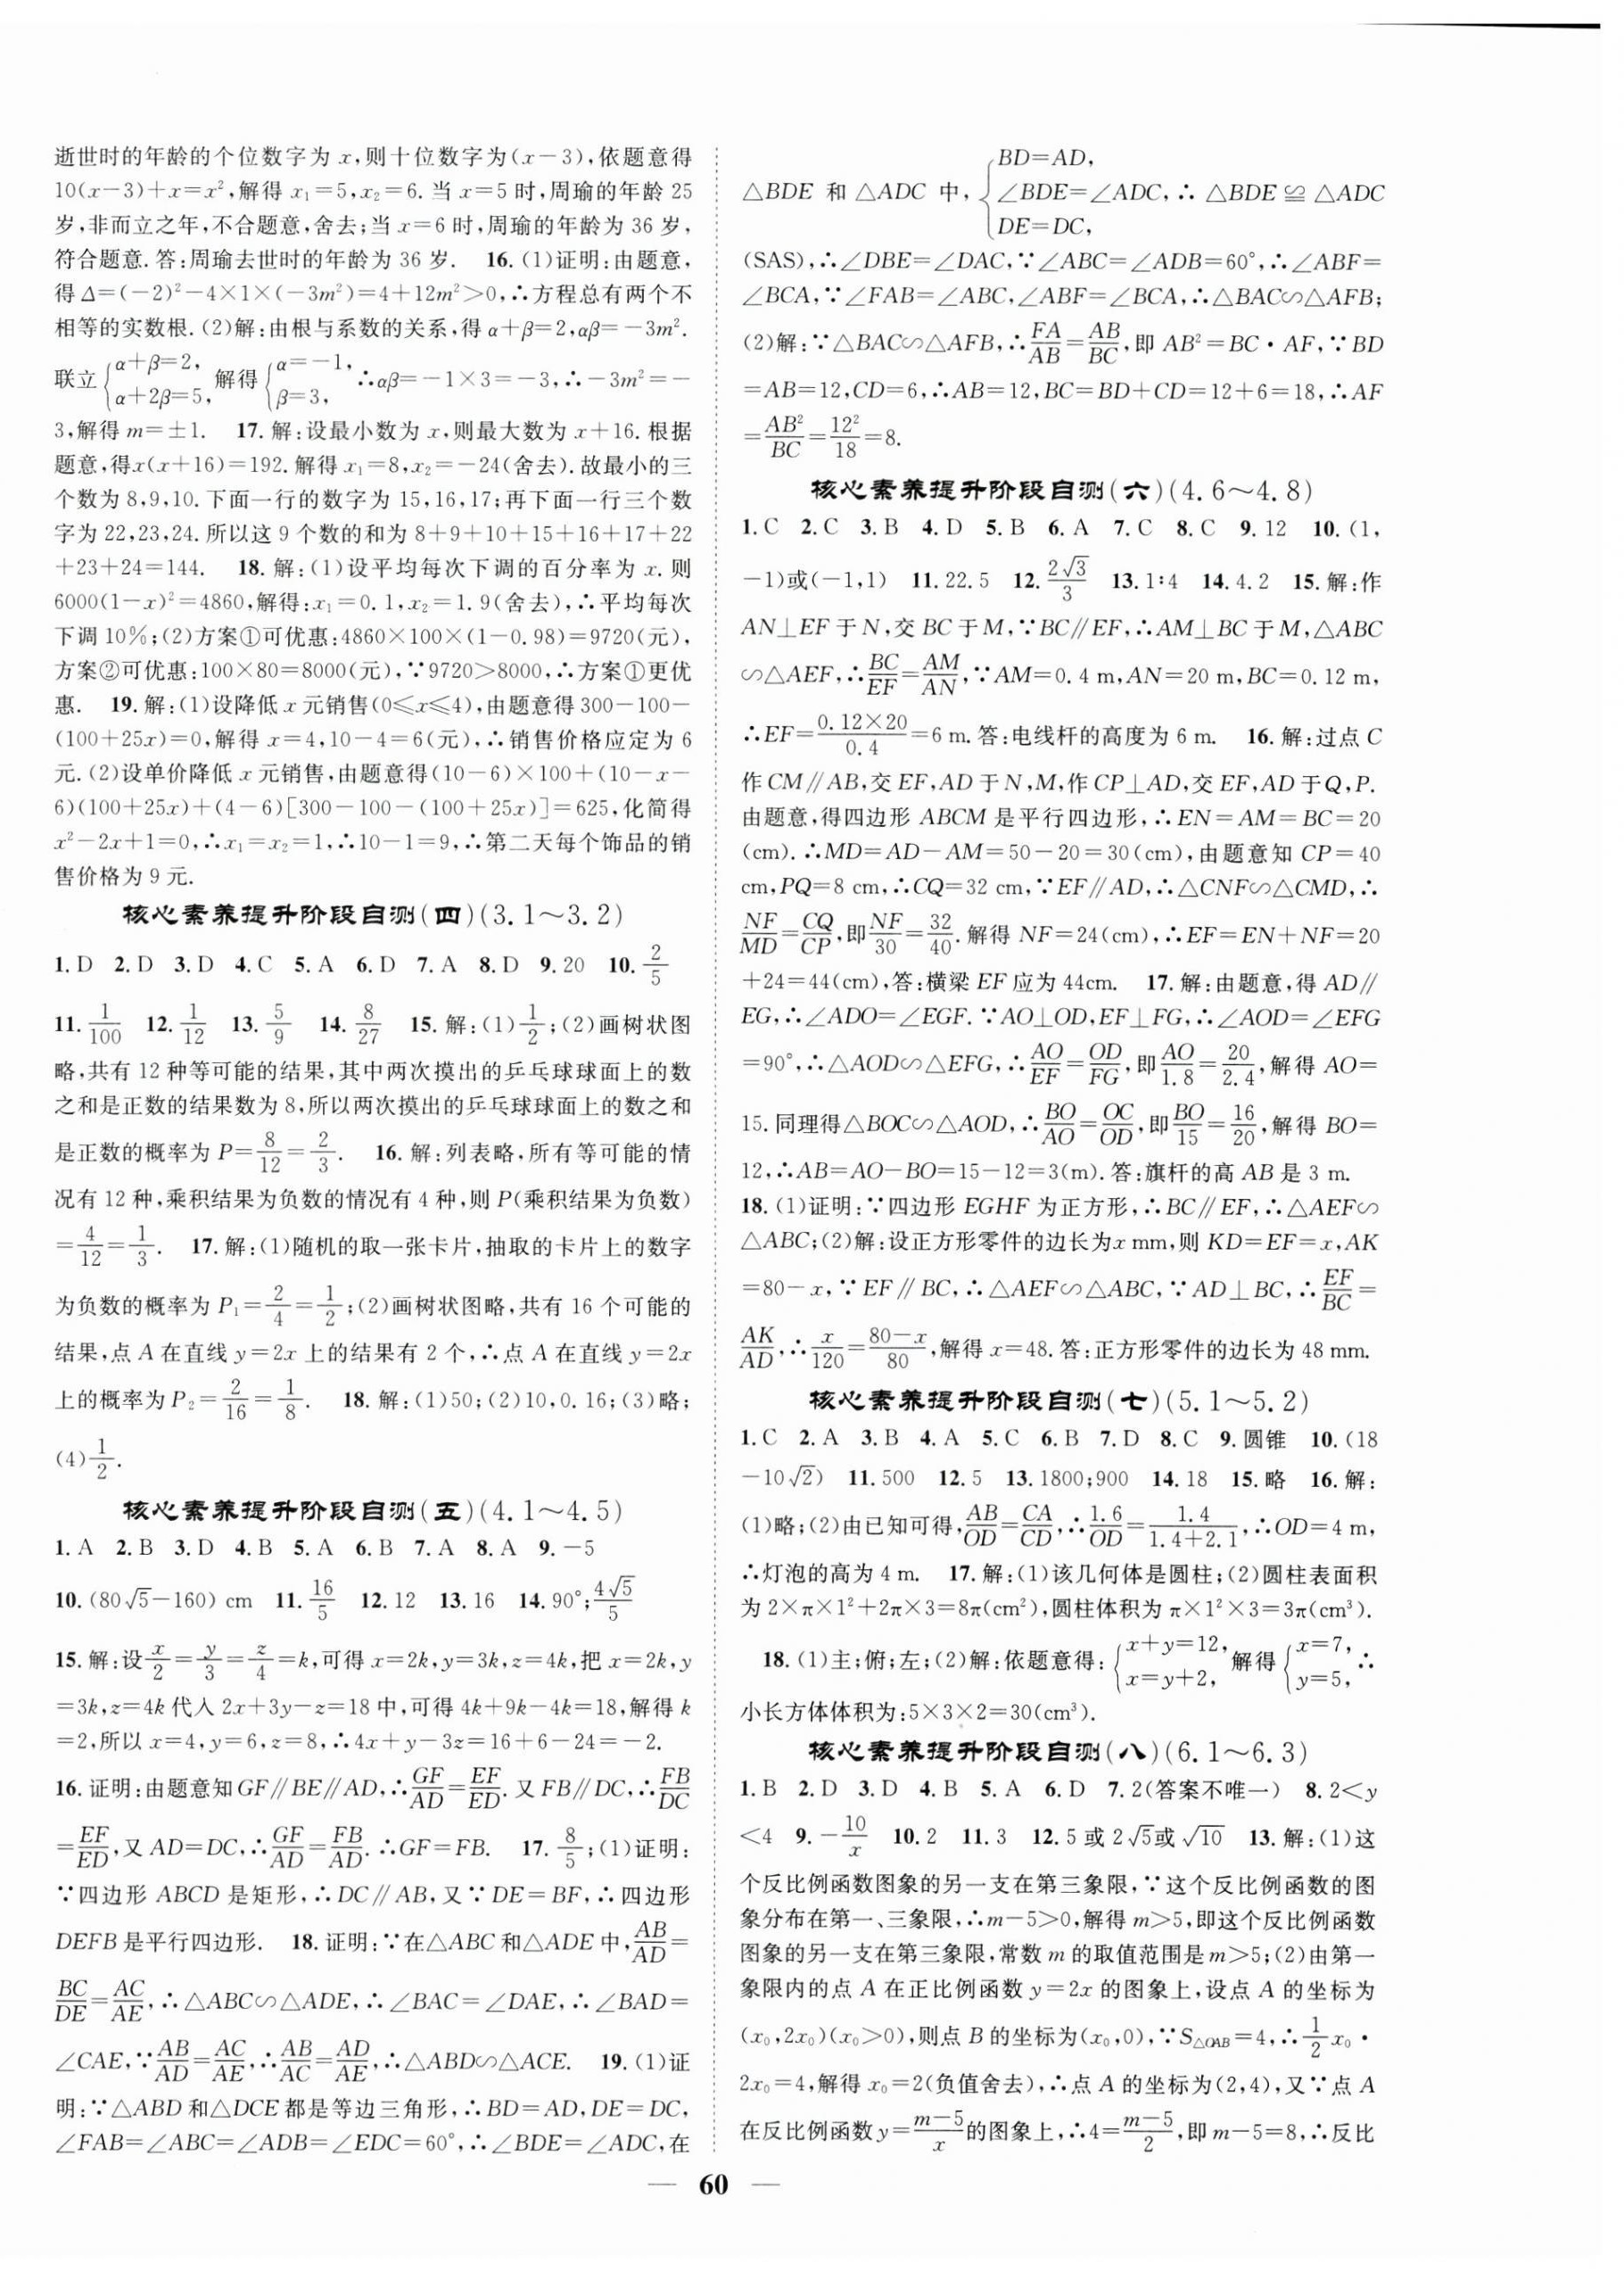 逝世时的年龄的个位数字为 x,则十位数字为(x－3),依题意得
10(x－3)＋x＝x²,解得 x₁＝5,x₂＝6. 当 x＝5 时,周瑜的年龄 25
岁,非而立之年,不合题意,舍去;当 x＝6 时,周瑜的年龄为 36 岁,
符合题意. 答:周瑜去世时的年龄为 36 岁. 16. (1)证明:由题意,
得 Δ＝(－2)²－4×1×(－3m²)＝4＋12m²＞0,∴方程总有两个不
相等的实数根. (2)解:由根与系数的关系,得 α＋β＝2,αβ＝－3m².
联立{α＋β＝2, α＋2β＝5, 解得{α＝－1, β＝3, ∴αβ＝－1×3＝－3,∴－3m²＝－
3,解得 m＝±1. 17. 解:设最小数为 x,则最大数为 x＋16. 根据
题意,得x(x＋16)＝192. 解得 x₁＝8,x₂＝－24(舍去). 故最小的三
个数为 8,9,10. 下面一行的数字为 15,16,17;再下面一行三个数
字为 22,23,24. 所以这 9 个数的和为 8＋9＋10＋15＋16＋17＋22
＋23＋24＝144. 18. 解:(1)设平均每次下调的百分率为 x. 则
6000(1－x)²＝4860,解得:x₁＝0. 1,x₂＝1. 9(舍去),∴平均每次
下调 10%;(2)方案①可优惠:4860×100×(1－0. 98)＝9720(元),
方案②可优惠:100×80＝8000(元),∵9720＞8000,∴方案①更优
惠. 19. 解:(1)设降低 x 元销售(0≤x≤4),由题意得 300－100－
(100＋25x)＝0,解得 x＝4,10－4＝6(元),∴销售价格应定为 6
元. (2)设单价降低 x 元销售,由题意得(10－6)×100＋(10－x－
6)(100＋25x)＋(4－6)[300－100－(100＋25x)]＝625,化简得
x²－2x＋1＝0,∴x₁＝x₂＝1,∴10－1＝9,∴第二天每个饰品的销
售价格为 9 元.
核心素养提升阶段自测(四)(3. 1～3. 2)
1. D 2. D 3. D 4. C 5. A 6. D 7. A 8. D 9. 20 10. 2/5
11. 1/100 12. 1/12 13. 5/9 14. 8/27 15. 解:(1)1/2;(2)画树状图
略,共有 12 种等可能的结果,其中两次摸出的乒乓球球面上的数
之和是正数的结果数为 8,所以两次摸出的乒乓球球面上的数之和
是正数的概率为 P＝8/12＝2/3. 16. 解:列表略,所有等可能的情
况有 12 种,乘积结果为负数的情况有 4 种,则 P(乘积结果为负数)
＝4/12＝1/3. 17. 解:(1)随机的取一张卡片,抽取的卡片上的数字
为负数的概率为 P₁＝2/4＝1/2;(2)画树状图略,共有 16 个可能的
结果,点 A 在直线 y＝2x 上的结果有 2 个,∴点 A 在直线 y＝2x
上的概率为 P₂＝2/16＝1/8. 18. 解:(1)50;(2)10,0. 16;(3)略;
(4)1/2.
核心素养提升阶段自测(五)(4. 1～4. 5)
1. A 2. B 3. D 4. B 5. A 6. B 7. A 8. A 9. －5
10. (80√5－160) cm 11. 16/5 12. 12 13. 16 14. 90°;4√5/5
15. 解:设x/2＝y/3＝z/4＝k,可得 x＝2k,y＝3k,z＝4k,把 x＝2k,y
＝3k,z＝4k 代入 2x＋3y－z＝18 中,可得 4k＋9k－4k＝18,解得 k
＝2,所以 x＝4,y＝6,z＝8,∴4x＋y－3z＝16＋6－24＝－2.
16. 证明:由题意知 GF∥BE∥AD,∴GF/AD＝EF/ED. 又 FB∥DC,∴FB/DC
＝EF/ED,又 AD＝DC,∴GF/AD＝FB/AD. ∴GF＝FB. 17. 8/5;(1)证明:
∵四边形 ABCD 是矩形,∴DC∥AB,又∵DE＝BF,∴四边形
DEFB 是平行四边形. 18. 证明:∵在△ABC 和△ADE 中,AB/AD＝
BC/DE＝AC/AE,∴△ABC∽△ADE,∴∠BAC＝∠DAE,∴∠BAD＝
∠CAE,∵AB/AD＝AC/AE,∴AB/AC＝AD/AE,∴△ABD∽△ACE. 19. (1)证
明:∵△ABD 和△DCE 都是等边三角形,∴BD＝AD,DE＝DC,
∠FAB＝∠ABC＝∠ADB＝∠EDC＝60°,∴∠BDE＝∠ADC,在
△BDE 和 △ADC 中,{BD＝AD, ∠BDE＝∠ADC, DE＝DC, ∴△BDE≌△ADC
(SAS),∴∠DBE＝∠DAC,∵∠ABC＝∠ADB＝60°,∴∠ABF＝
∠BCA,∵∠FAB＝∠ABC,∠ABF＝∠BCA,∴△BAC∽△AFB;
(2)解:∵△BAC∽△AFB,∴FA/AB＝AB/BC,即 AB²＝BC・AF,∵BD
＝AB＝12,CD＝6,∴AB＝12,BC＝BD＋CD＝12＋6＝18,∴AF
＝AB²/BC＝12²/18＝8.
核心素养提升阶段自测(六)(4. 6～4. 8)
1. C 2. C 3. B 4. D 5. B 6. A 7. C 8. C 9. 12 10. (1,
－1)或(－1,1) 11. 22. 5 12. 2√3/3 13. 1∶4 14. 4. 2 15. 解:作
AN⊥EF 于 N,交 BC 于 M,∵BC∥EF,∴AM⊥BC 于 M,△ABC
∽△AEF,∴BC/EF＝AM/AN,∵AM＝0. 4 m,AN＝20 m,BC＝0. 12 m,
∴EF＝0. 12×20/0. 4＝6 m. 答:电线杆的高度为 6 m. 16. 解:过点 C
作 CM∥AB,交 EF,AD 于 N,M,作 CP⊥AD,交 EF,AD 于 Q,P.
由题意,得四边形 ABCM 是平行四边形,∴EN＝AM＝BC＝20
(cm). ∴MD＝AD－AM＝50－20＝30(cm),由题意知 CP＝40
cm,PQ＝8 cm,∴CQ＝32 cm,∵EF∥AD,∴△CNF∽△CMD,∴
NF/MD＝CQ/CP,即NF/30＝32/40. 解得 NF＝24(cm),∴EF＝EN＋NF＝20
＋24＝44(cm),答:横梁 EF 应为 44cm. 17. 解:由题意,得 AD∥
EG,∴∠ADO＝∠EGF. ∵AO⊥OD,EF⊥FG,∴∠AOD＝∠EFG
＝90°,∴△AOD∽△EFG,∴AO/EF＝OD/FG,即AO/1. 8＝20/2. 4,解得 AO＝
15. 同理得△BOC∽△AOD,∴BO/AO＝OC/OD,即BO/15＝16/20,解得 BO＝
12,∴AB＝AO－BO＝15－12＝3(m). 答:旗杆的高 AB 是 3 m.
18. (1)证明:∵四边形 EGHF 为正方形,∴BC∥EF,∴△AEF∽
△ABC;(2)解:设正方形零件的边长为x mm,则 KD＝EF＝x,AK
＝80－x,∵EF∥BC,∴△AEF∽△ABC,∵AD⊥BC,∴EF/BC＝
AK/AD,∴x/120＝80－x/80,解得 x＝48. 答:正方形零件的边长为 48 mm.
核心素养提升阶段自测(七)(5. 1～5. 2)
1. C 2. A 3. B 4. A 5. C 6. B 7. D 8. C 9. 圆锥 10. (18
－10√2) 11. 500 12. 5 13. 1800;900 14. 18 15. 略 16. 解:
(1)略;(2)由已知可得,AB/OD＝CA/CD,∴1. 6/OD＝1. 4/1. 4＋2. 1,∴OD＝4 m,
∴灯泡的高为 4 m. 17. 解:(1)该几何体是圆柱;(2)圆柱表面积
为 2×π×1²＋2π×3＝8π(cm²),圆柱体积为 π×1²×3＝3π(cm³).
18. (1)主;俯;左;(2)解:依题意得:{x＋y＝12, x＝y＋2, 解得{x＝7, y＝5, ∴
小长方体体积为:5×3×2＝30(cm³).
核心素养提升阶段自测(八)(6. 1～6. 3)
1. B 2. D 3. D 4. B 5. A 6. D 7. 2(答案不唯一) 8. 2＜y
＜4 9. －10/x 10. 2 11. 3 12. 5 或 2√5或√10 13. 解:(1)这
个反比例函数图象的另一支在第三象限,∵这个反比例函数的图
象分布在第一、三象限,∴m－5＞0,解得 m＞5,即这个反比例函数
图象的另一支在第三象限,常数 m 的取值范围是 m＞5;(2)由第一
象限内的点 A 在正比例函数 y＝2x 的图象上,设点 A 的坐标为
(x₀,2x₀)(x₀＞0),则点 B 的坐标为(x₀,0),∵S△OAB＝4,∴1/2x₀・
2x₀＝4,解得 x₀＝2(负值舍去),∴点 A 的坐标为(2,4),又∵点 A
在反比例函数 y＝m－5/x的图象上,∴4＝m－5/2,即 m－5＝8,∴反比
— 60 —